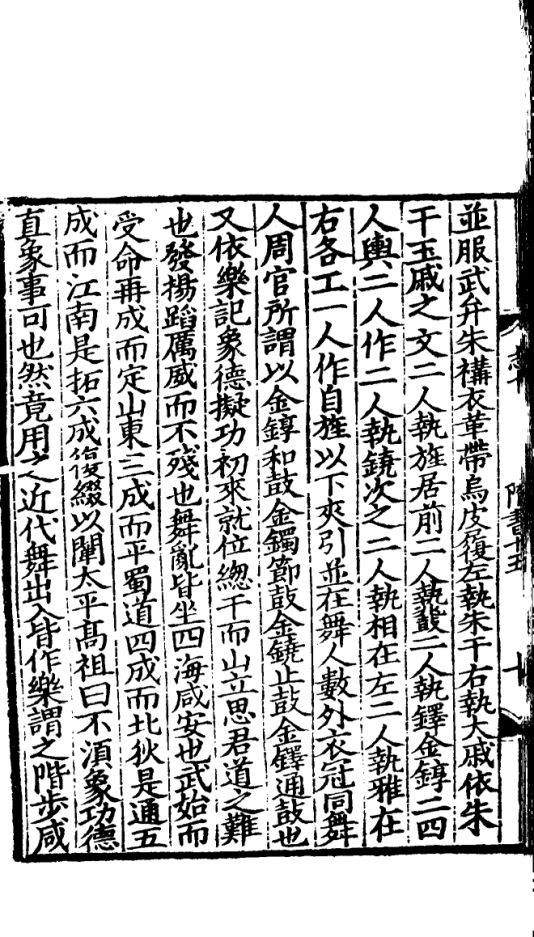 並服武弁朱褠衣革帶烏皮履左執朱干右執大戚依朱
干玉戚之文二人執旌居前二人執鼗二人執鐸金錞二四
人輿二人作二人執鐃次之二人執相在左二人執雅在
右各工一人作自旌以下夾引並在舞人數外衣冠同舞
人周官所謂以金錞和鼓金鐲節鼓金鐃止鼓金鐸通鼓也
又依樂記象德擬功初來就位緫干而山立思君道之難
也發揚蹈厲威而不殘也舞亂皆坐四海咸安也武始而
受命再成而定山東三成而平蜀道四成而北狄是通五
成而江南是拓六成復綴以闡太平髙祖曰不湏象功德
直象事可也然竟用之近代舞出入皆作樂謂之階步咸
隋書十五
十